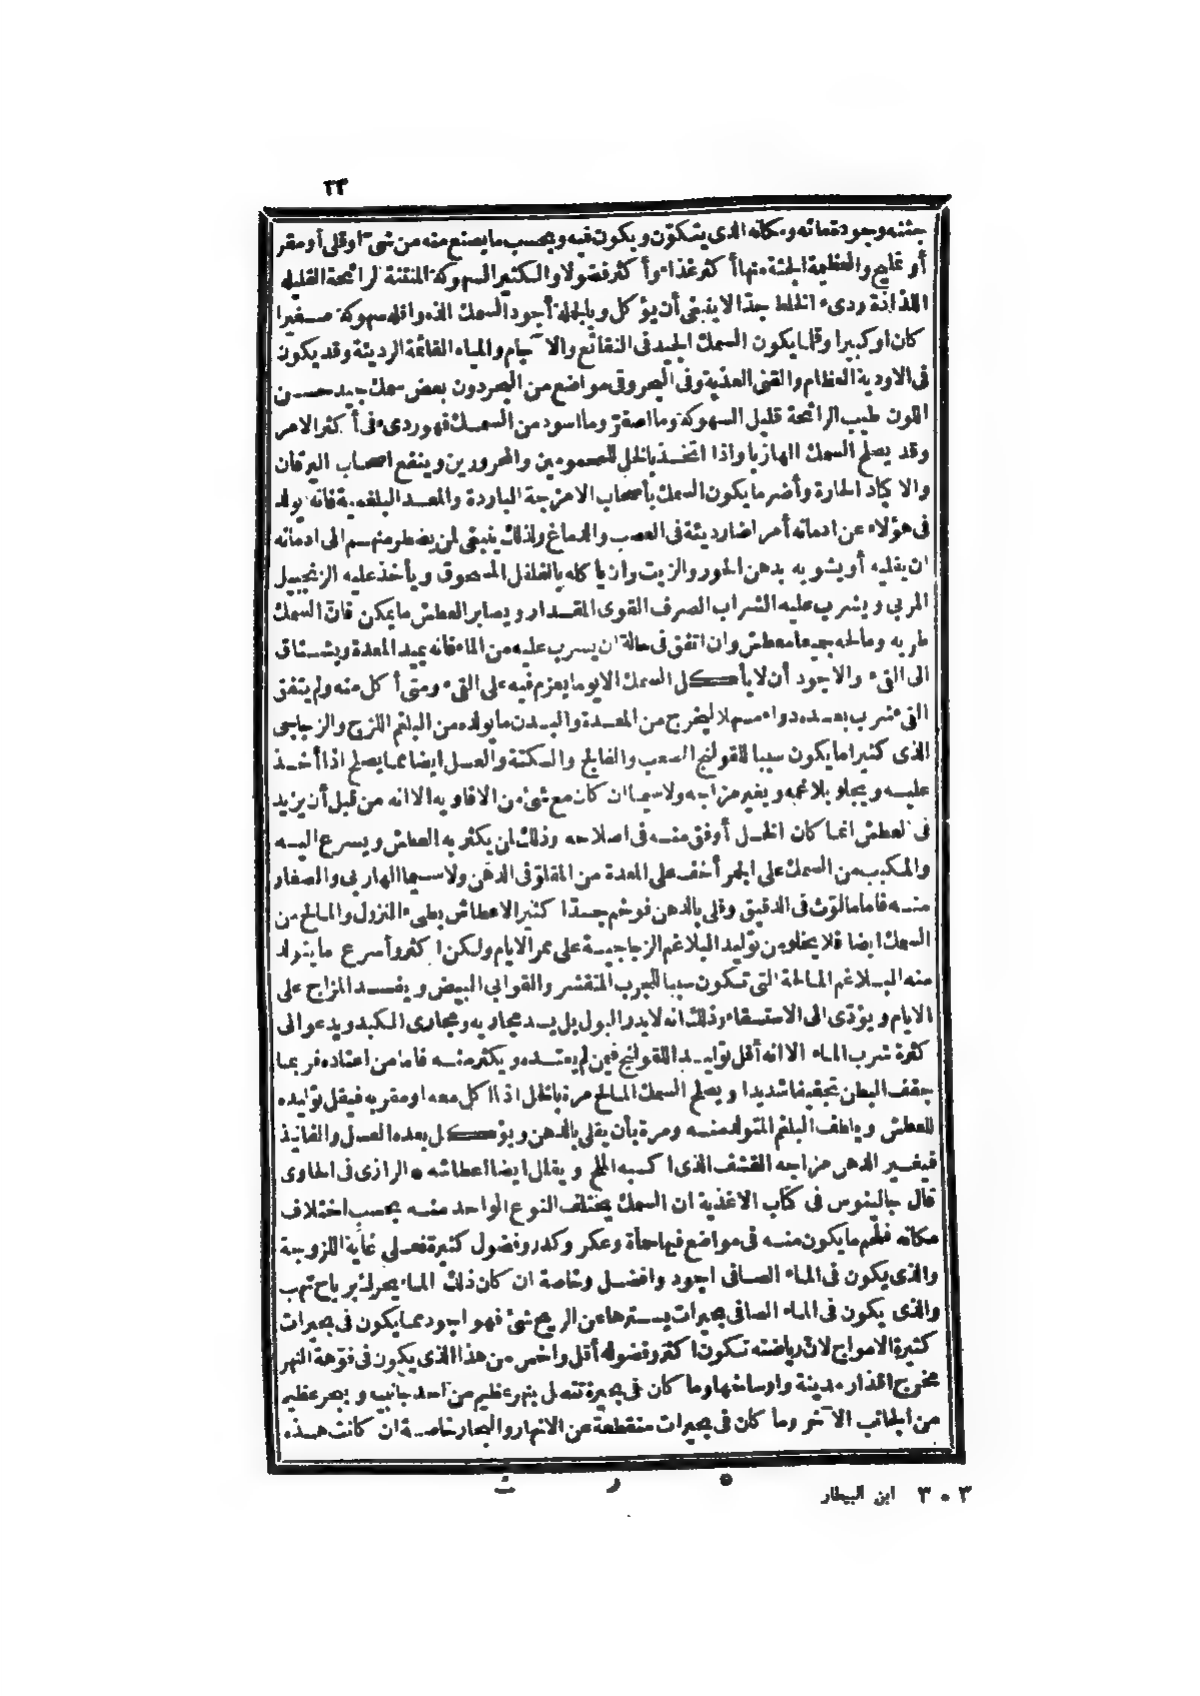 ٣٣
جثته وجودة مائه ومكانه الذى يتكوّن ويكون فيه وبحسب ما يصنع منه من شىّ اوقلى أو مقر
أو تمليح والعظيمة الجثة منها أكثر غذاء وأكثر فضولا والكثير السهوكة المنتنة الرائحة القليله
اللذاذة ردىء الخلط جدّا لا ينبغى أن يؤكل وبالجملة أجود السمك ألذه واقله سهوكة صغيرا
كان او كبيرا وقلما يكون السمك الجيد فى النقائع والآجام والمياه القائمة الرديئة وقد يكون
فى الاودية العظام والقنى العذبة وفى البحر وفى مواضع من البحر دون بعض سمك جيد حسن
اللون طيب الرائحة قليل السهوكة وما اصفرّ وما اسود من السمك فهو ردىء فى أكثر الامر
وقد يصلح السمك الهازبا واذا اتخذ بالخل للمحمومين والمحرورين وينفع اصحاب اليرقان
والاكباد الحارة وأضر ما يكون السمك بأصحاب الامزجة الباردة والمعد البلغمية فانه يولد
فى هؤلاء عن ادمانه أمراضا رديئة فى العصب والدماغ ولذلك ينبغى لمن يضطر منهم الى ادمانه
ان يقليه أو يشويه بدهن الجوز والزيت وان يأكله بالفلفل المسحوق ويأخذ عليه الزنجبيل
المربى ويشرب عليه الشراب الصرف القوى المقدار ويصابر العطش ما يمكن فانّ السمك
طريه ومالحه جميعا معطش وان اتفق فى حالة ان يسرب عليه من الماء فانه يميد المعدة ويشتاق
الى القىء والاجود أن لا يأكل السمك الا يوما يعزم فيه على القىء ومتى أكل منه ولم يتفق
القىء شرب بعده دواء مسهلا ليخرج من المعدة والبدن ما يولده من البلغم اللزج والزجاجى
الذى كثيرا ما يكون سببا للقولنج الصعب والفالج والسكتة والعسل ايضا مما يصلح اذا أخذ
عليه ويجلو بلاغمه ويغير مزاجه ولا سيما ان كان مع شئ من الافاويه الا انه من قبل أن يزيد
فى العطش انما كان الخل أوفق منه فى اصلاحه وذلك لمن يكثر به العطش ويسرع اليه
والمكبب من السمك على الجمر أخف على المعدة من المقلوّ فى الدهن ولا سيما الهاربى والصغار
منه فاما مالوّث فى الدقيق وقلى بالدهن فوخم جدّا كثير الاعطاش بطىء النزول والمالح من
السمك ايضا فلا يخلو من توليد البلاغم الزجاجية على ممر الايام ولكن اكثر وأسرع ما يتولد
منه البلاغم المالحة التى تكون سببا للجرب المتقشر والقوابى البيض ويفسد المزاج على
الايام ويؤدّى الى الاستسقاء وذلك انه لا يدر البول بل يسد مجاريه ومجارى الكبد ويدعو الى
كثرة شرب الماء الا انه أقل توليدا للقولنج فيمن لم يعتده ويكثر منه فاما من اعتاده فربما
جفف البطن تجفيفا شديدا ويصلح السمك المالح مرة بالخل اذا اكل معه او مقر به فيقل توليده
للعطش ويلطف البلغم المتولد منه ومرة بأن يقلى بالدهن ويؤكل بعده العسل والفانيذ
فيغير الدهن مزاجه القشف الذى اكسبه الملح ويقلل ايضا اعطاشه • الرازى فى الحاوى
قال جالينوس فى كتاب الاغذية ان السمك يختلف النوع الواحد منه بحسب اختلاف
مكانه فلحم ما يكون منه فى مواضع فيها حمأة وعكر وكدر وفضول كثيرة فعلى غاية اللزوجة
والذى يكون فى الماء الصافى اجود وافضل وخاصة ان كان ذلك الماء يحرك برياح تهب
والذى يكون فى الماء الصافى بحيرات يسترها عن الريح شئ فهو اجود مما يكون فى بحيرات
كثيرة الامواج لانّ رياضته تكون اكثر وفضوله أقل واخس من هذا الذى يكون فى فوّهة النهر
مخرج اقذار مدينة واوساخها وما كان فى بحيرة تتصل بنهر عظيم من أحد جانبيه وبحر عظيم
من الجانب الآخر وما كان فى بحيرات منقطعة عن الانهار والبحار خاصة انّ كانت هذه
٥ ر ت
٣ • ٣ ابن البيطار